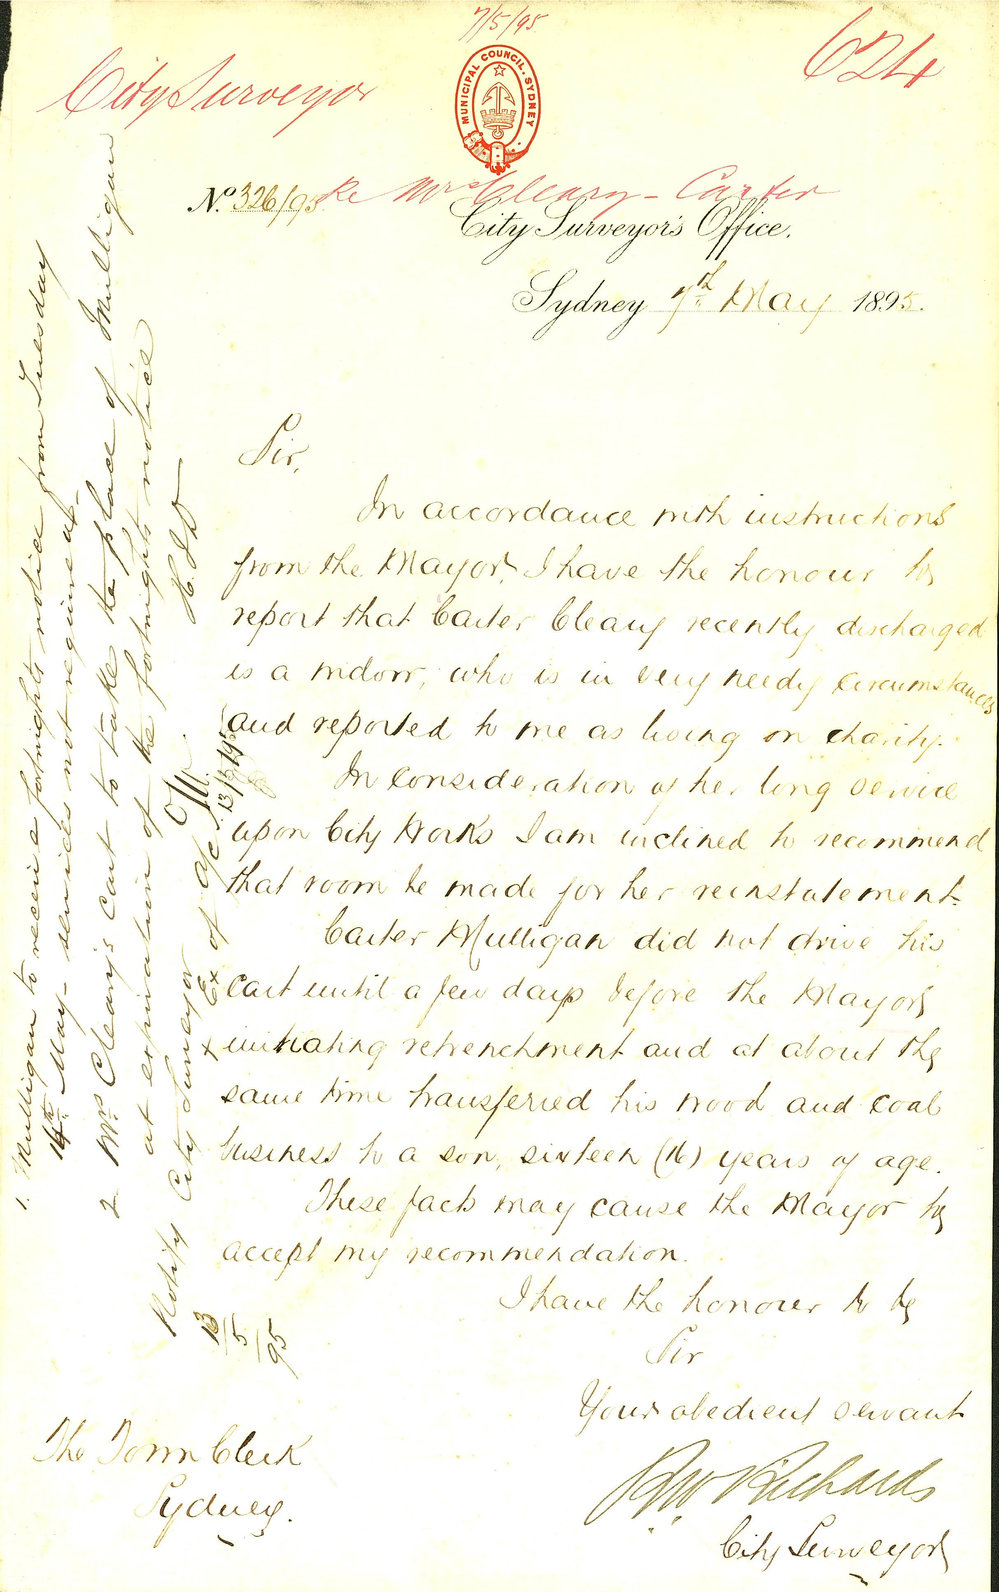 7/5/95
City Surveyor
624
MUNICIPAL COUNCIL. SYDNEY
No. 326/95
Re Mrs Cleary - Carter
City Surveyor's Office.
Sydney 7th May 1895.
Sir,
In accordance with instructions
from the Mayor, I have the honour to
report that Carter Cleary recently discharged
is a widow, who is in very needy circumstances
and reported to me as living on charity.
In consideration of her long service
upon City Works I am inclined to recommend
that room be made for her reinstatement.
Carter Mulligan did not drive his
cart until a few days before the Mayor's
initiating retrenchment and at about the
same time transferred his wood and coal
business to a son, sixteen (16) years of age.
These facts may cause the Mayor to
accept my recommendation.
I have the honour to be
Sir
Your obedient servant
RW Richards
City Surveyor
The Town Clerk
Sydney.
1. Mulligan to receive a fortnights notice from Tuesday
14th May - services not required.
2 Mrs Cleary's cart to take the place of Mulligan
at expiration of the fortnights notice
Notify City Surveyor
13/5/95
Ex of
13/5/95